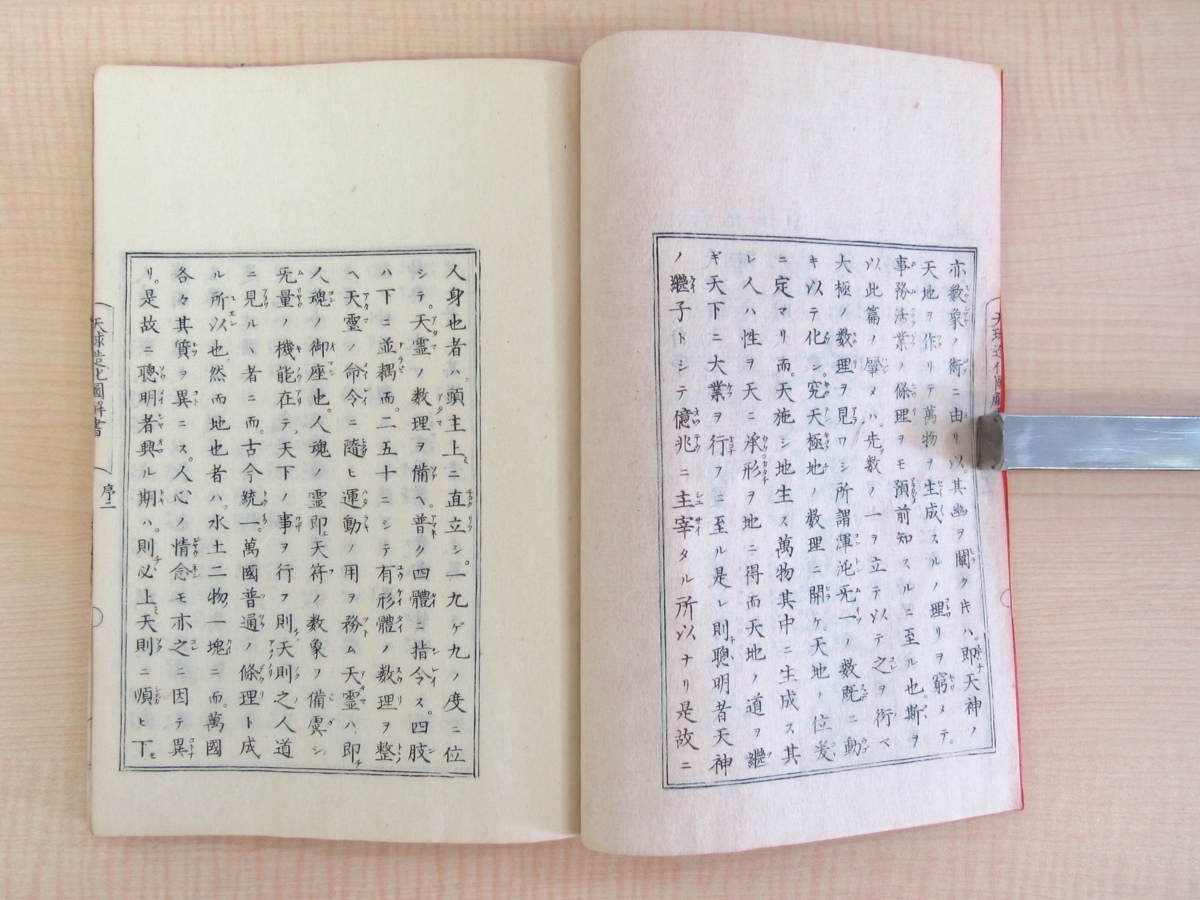 亦数象ノ術ニ由リ以其幽ヲ闢クキハ即天神ノ
天地ヲ作リテ萬物ヲ生成スルノ理リヲ窮メテ
事務活業ノ條理ヲモ預前知スルニ至ル也斯ヲ
以此篇ノ肇メハ先数ノ一ヲ立テ以テ之ヲ術ベ
大極ノ数理ヲ見ワシ所謂渾沌旡一ノ数既ニ動
キ以テ化シ究天極地ノ数理ニ開ケ天地ノ位爰
ニ定マリ而天施シ地生ス萬物其中ニ生成ス其
レ人ハ性ヲ天ニ承形ヲ地ニ得而天地ノ道ヲ繼
ギ天下ニ大業ヲ行フニ至ル是レ則聰明者天神
ノ繼子トシテ億兆ニ主宰タル所以ナリ是故ニ
人身也者ハ頭主上ニ直立シ一九ゲ九ノ度ニ位
シテ天霊ノ数理ヲ備ヘ普ク四體ニ指令ス四肢
ハ下ニ並耦而二五十ニシテ有形體ノ数理ヲ整
ヘ天霊ノ命令ニ隨ヒ運動ノ用ヲ務ム天霊ハ即
人魂ノ御座也人魂ノ霊即天符ノ数象ヲ備霙シ
旡量ノ機能在テ天下ノ事ヲ行フ則天則之人道
ニ見ルヽ者ニ而古今統一萬國普通ノ條理ト成
ル所以也然而地也者ハ水土二物一塊ニ而萬國
各々其質ヲ異ニス人心ノ情念モ亦之ニ因テ異
リ是故ニ聰明者興ル期ハ則必上天則ニ順ヒ下
天球造化圖解書
序二